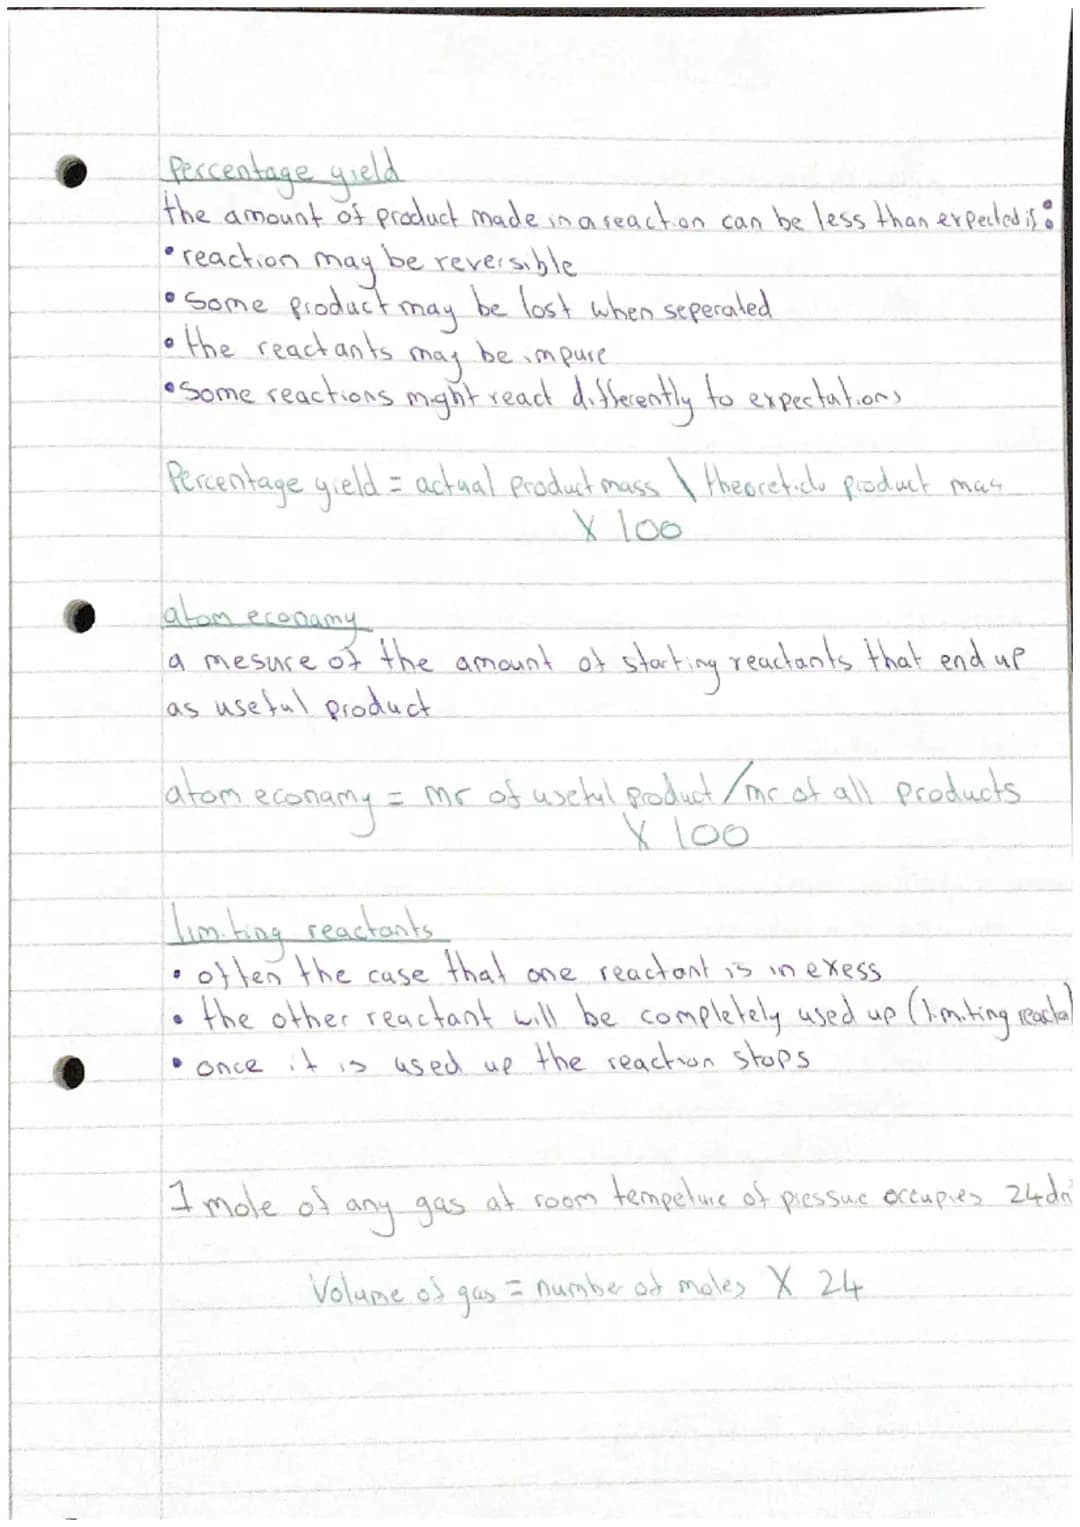 Percentage yield
the amount of product made in a reaction can be less than expected if:
• reaction may be reversible
• Some product may be lost when seperated
• the reactants may be impure
• Some reactions might react differently to expectations
Percentage yield = actual product mass \ theoreticlu product mas
X 100
atom econamy
a mesure of the amount of starting reactants that end up
as useful product
atom econamy = mr of useful product / mr of all products
X 100
limiting reactants
• often the case that one reactant is in exess
• the other reactant will be completely used up (limiting reacta
• once it is used up the reaction stops
1 mole of any gas at room tempeture of pressure occupies 24dm³
Volume of gas = number of moles X 24